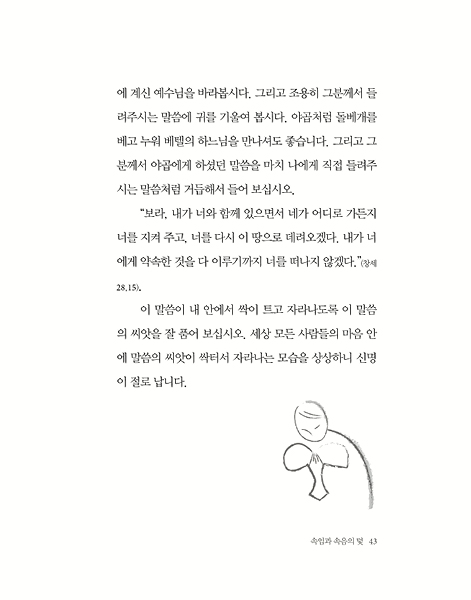 에 계신 예수님을 바라봅시다. 그리고 조용히 그분께서 들
려주시는 말씀에 귀를 기울여 봅시다. 야곱처럼 돌베개를
베고 누워 베텔의 하느님을 만나셔도 좋습니다. 그리고 그
분께서 야곱에게 하셨던 말씀을 마치 나에게 직접 들려주
시는 말씀처럼 거듭해서 들어 보십시오.
“보라, 내가 너와 함께 있으면서 네가 어디로 가든지
너를 지켜 주고, 너를 다시 이 땅으로 데려오겠다. 내가 너
에게 약속한 것을 다 이루기까지 너를 떠나지 않겠다.”(창세
28,15).
이 말씀이 내 안에서 싹이 트고 자라나도록 이 말씀
의 씨앗을 잘 품어 보십시오. 세상 모든 사람들의 마음 안
에 말씀의 씨앗이 싹터서 자라나는 모습을 상상하니 신명
이 절로 납니다.
속임과 속음의 덫 43